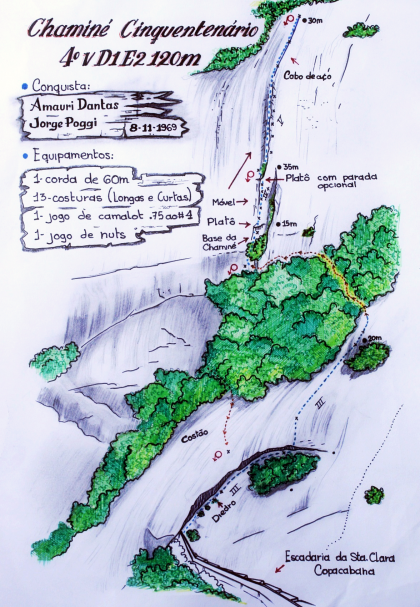 Chaminé Cinquentenário
4º V D1 E2 120m
• Conquista:
Amauri Dantas
Jorge Poggi
8-11-1969
• Equipamentos:
1- corda de 60m
15- costuras (Longas e Curtas)
1- jogo de camalot .75 ao #4
1- jogo de nuts
30m
Cabo de aço
35m
Platô com parada
opcional
Móvel
Platô
15m
Base da
Chaminé
20m
III
Costão
III
Diedro
Escadaria da Sta. Clara
Copacabana